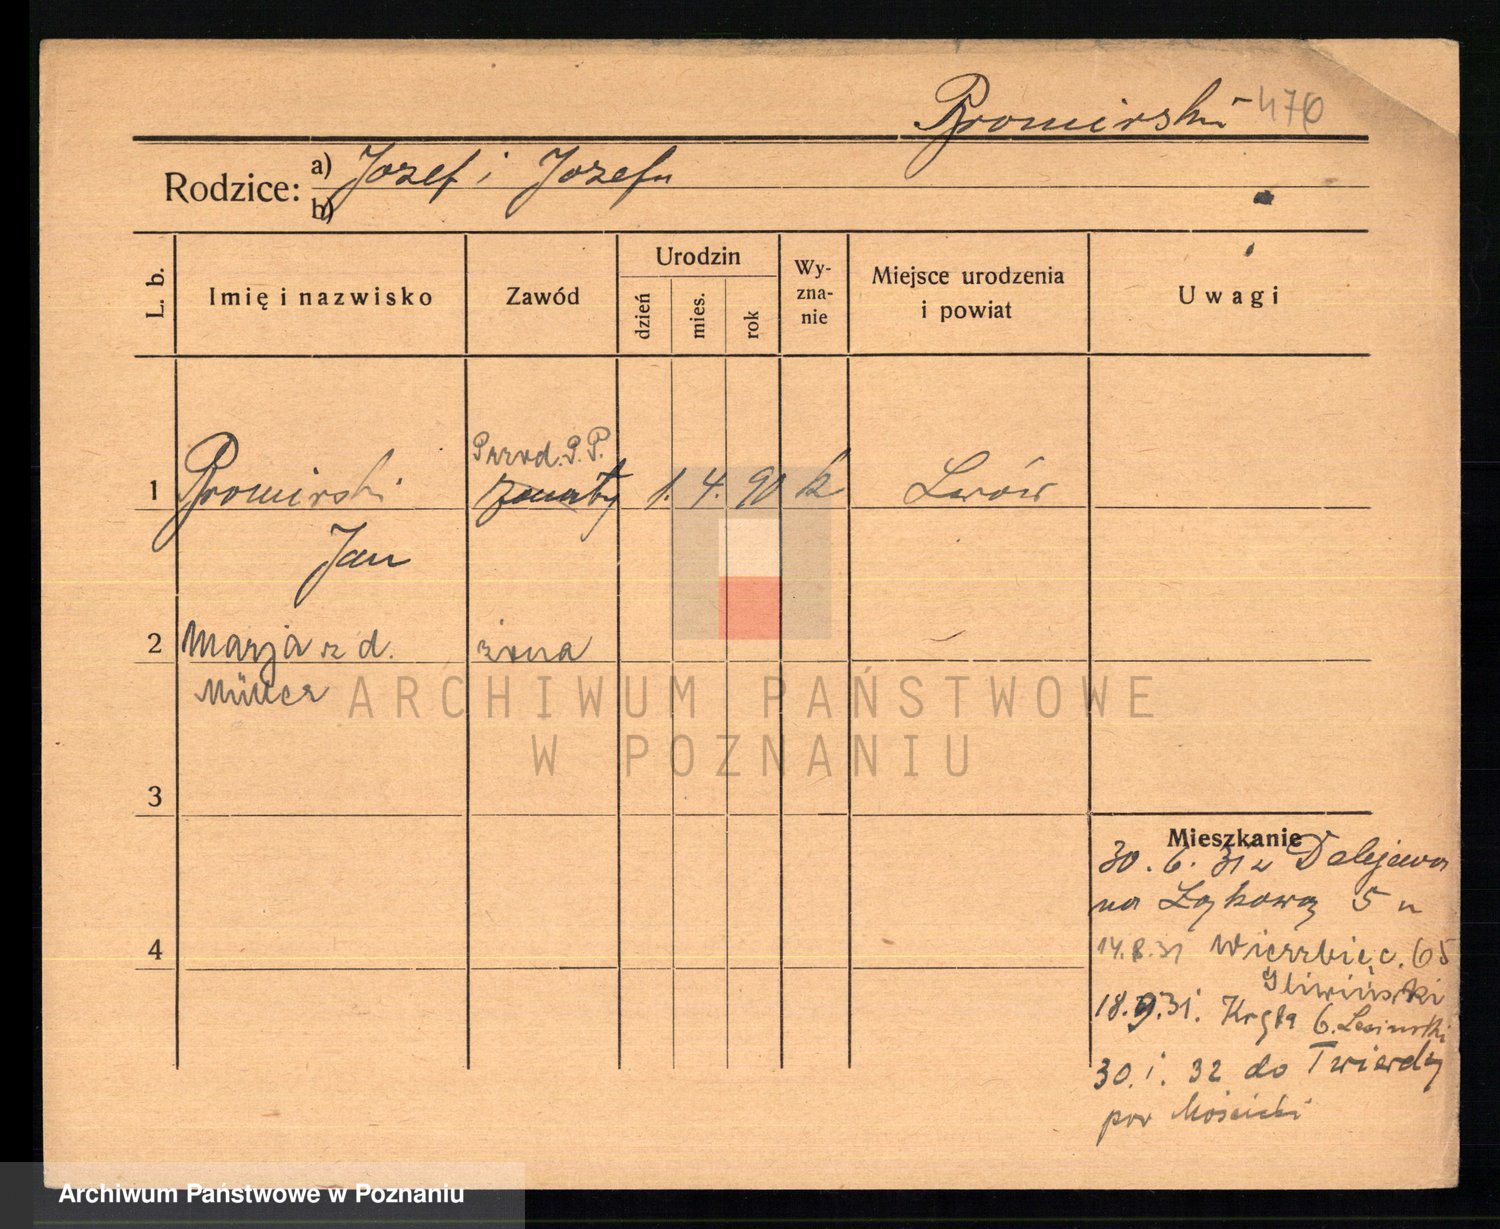 Promirski 470
Rodzice: a) Jozef i Jozefa
b)
L. b.
Imię i nazwisko
Zawód
Urodzin
dzień
mies.
rok
Wy-
zna-
nie
Miejsce urodzenia
i powiat
Uwagi
Przod. P. P.
1 Promirski żonaty 1. 4. 90 k Lwów
Jan
2 Marja z d. żona
Müller
ARCHIWUM PAŃSTWOWE
W POZNANIU
3
Mieszkanie
30. 6. 31 z Dalejewa
na Łąkową 5 u
4
14.8.31 Wierzbięc. 65
Gliwiński
18.9.31. Kręta 6. Lesinski
30. i. 32 do Twierdzy
pow Mościcki
Archiwum Państwowe w Poznaniu